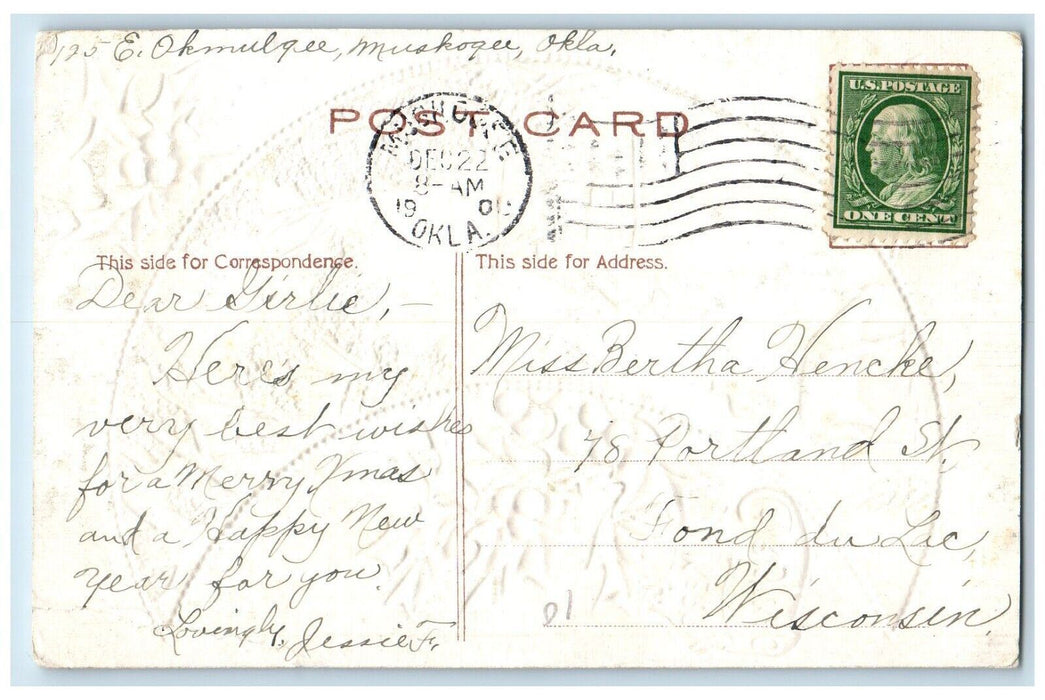 125 E. Okmulgee, Muskogee, Okla.
POST CARD
MUSKOGEE
DEC 22
8-AM
19
OKLA.
U.S. POSTAGE
ONE CENT
This side for Correspondence.
This side for Address.
Dear Girlie, —
Here's my
very best wishes
for a Merry Xmas
and a Happy New
Year for you.
Lovingly, Jessie F.
Miss Bertha Hencke,
78 Portland St.
Fond du Lac,
Wisconsin.